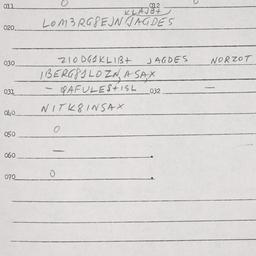 011 0 012 0
KLAJB+
020 LOM3RG8EJN JAGDES
030 210DG1KLIB+ JAGDES NORZOT
IBERG81LOZN, ASAX
031 - QAFULES+ISL 032 -
040 NITK8INSAX
050 0
060 -
070 0